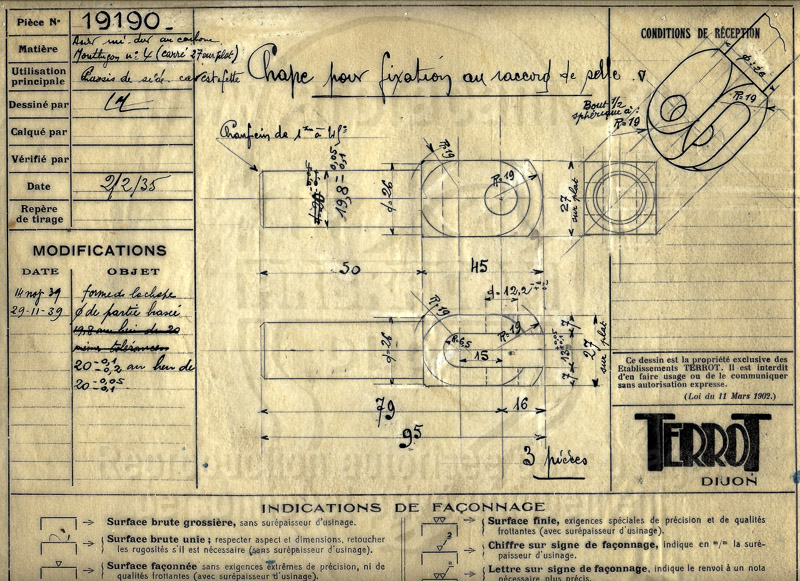 Pièce N° 19190
Matière
Mouttuçon n: 4 (carré 27 sur plat)
Utilisation principale
Chassis de side-car
Dessiné par
Calqué par
Vérifié par
Date 2/2/35
Repère de tirage
MODIFICATIONS
DATE OBJET
14 nov 39 forme de la chape
29-11-39 ϕ de partie basse
19,8 au lieu de 20
mêmes tolérances
20 -0,1 -0,2 au lieu de
20 -0,05 -0,1
Chape pour fixation au raccord de selle.
CONDITIONS DE RÉCEPTION
ϕ=26
R=19
Bout 1/2
sphérique à:
R=19
Chanfrein de 1 à 45°
R=19
R=19
19,8 -0,05 -0,1
ϕ=26
27 sur plat
50 45
d=12,2
R=19
R=19
R=6,5
15
ϕ=26
7 13 7
27 sur plat
79 16
95
3 pièces
Ce dessin est la propriété exclusive des
Etablissements TERROT. Il est interdit
d'en faire usage ou de le communiquer
sans autorisation expresse.
(Loi du 11 Mars 1902.)
TERROT
DIJON
INDICATIONS DE FAÇONNAGE
Surface brute grossière, sans surépaisseur d'usinage.
Surface brute unie; respecter aspect et dimensions, retoucher
les rugosités s'il est nécessaire (sans surépaisseur d'usinage).
Surface façonnée sans exigences extrêmes de précision, ni de
qualités frottantes (avec surépaisseur d'usinage).
Surface finie, exigences spéciales de précision et de qualités
frottantes (avec surépaisseur d'usinage).
2
Chiffre sur signe de façonnage, indique en m/m la surépaisseur d'usinage.
Lettre sur signe de façonnage, indique le renvoi à un nota
nécessaire plus précis.